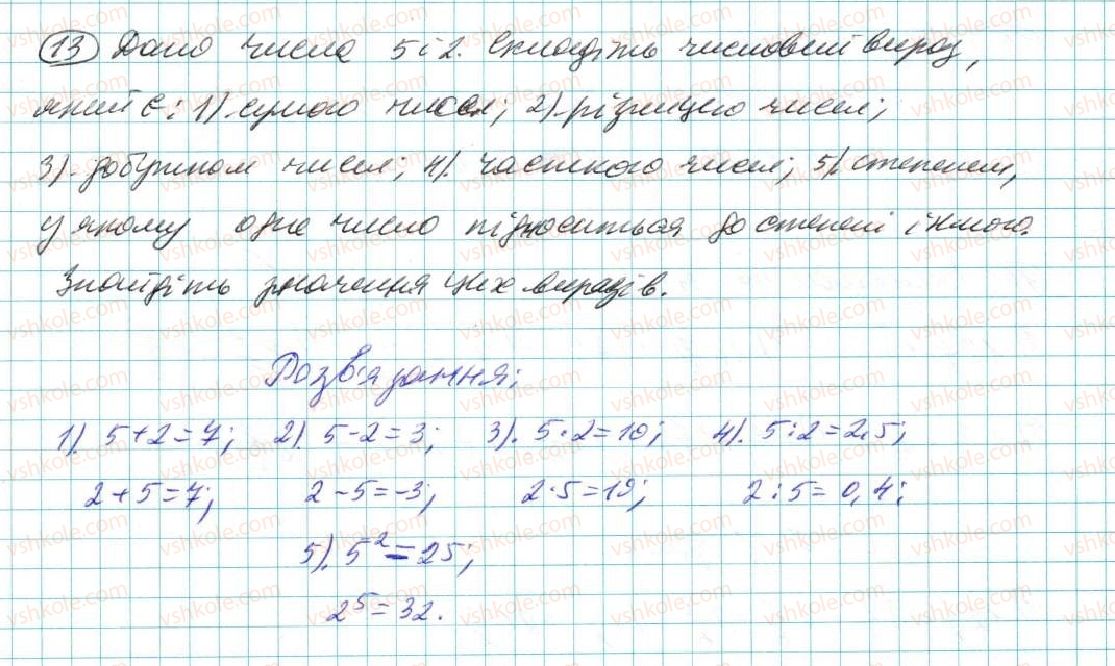 13 Дано числа 5 і 2. Складіть числовий вираз,
який є: 1) сумою чисел; 2) різницею чисел;
3). добутком чисел; 4). часткою чисел; 5). степенем,
у якому одне число підноситься до степені іншого.
Знайдіть значення цих виразів.
Розв'язання:
1). 5+2=7; 2) 5-2=3; 3). 5·2=10; 4). 5:2=2,5;
2+5=7; 2-5=-3; 2·5=10; 2:5=0,4;
5). 5²=25;
2⁵=32.